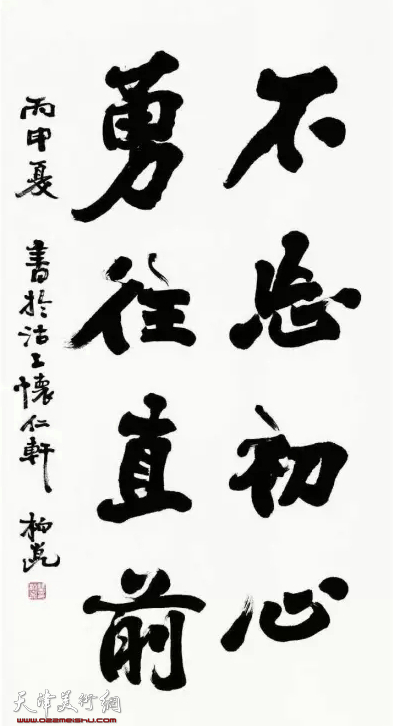 不忘初心
勇往直前
丙申夏 書於沽上懷仁軒 柏嵐
天津美術網
www.022meishu.com